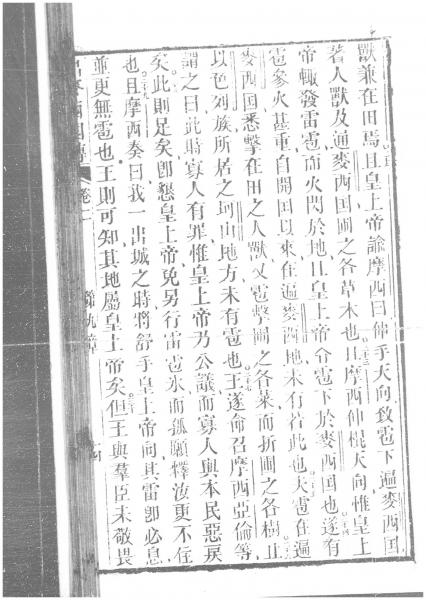 獸兼在田焉且皇上帝諭摩西曰伸手天向致雹下遍麥西國
著人獸及通麥西国圃之各草木也且摩西伸棍天向惟皇上
帝輒發雷雹而火閃於地且皇上帝令雹下於麥西国也遂有
雹參火甚重自開国以來在遍麥西地未有若此也夫雹在遍
麥西国悉擊在田之人獸又雹擊圃之各菜而折圃之各樹且
以色列族所居之坷山地方未有雹也王遂命召摩西亞倫等
謂之曰此時寡人有罪惟皇上帝乃公議而寡人與本民惡戾
矣此則足矣卽懇皇上帝免另行雷雹氷而孤願釋汝更不住
也且摩西奏曰我一出城之時將舒手皇上帝向其雷卽必息
並更無雹也王則可知其地屬皇上帝矣但王與羣臣未敬畏
卷二 第九章